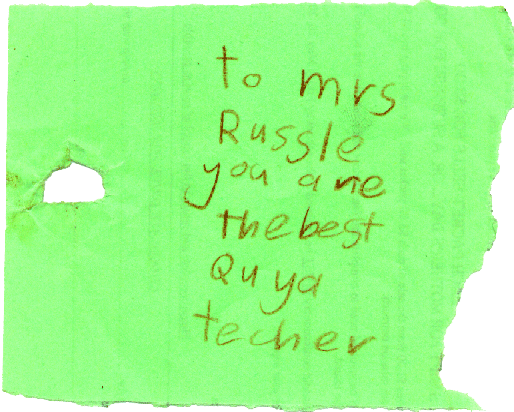 to mrs
Russle
you are
the best
Quya
techer